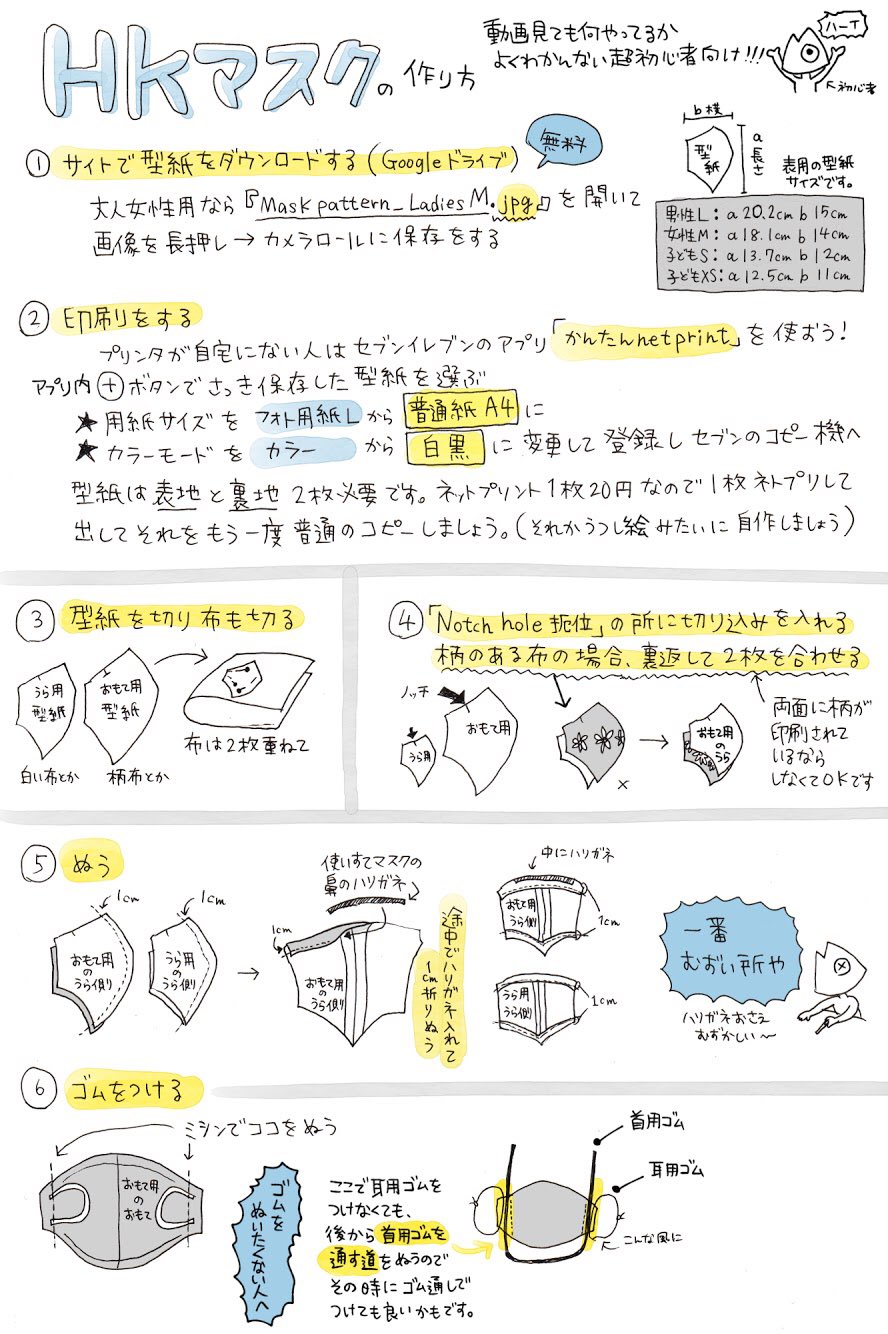 HKマスクの作り方
動画見ても何やってるか
よくわかんない超初心者向け!!!
ハーイ
初心者
① サイトで型紙をダウンロードする(Googleドライブ)
無料
大人女性用なら『Mask pattern_Ladies M.jpg』を開いて
画像を長押し→カメラロールに保存をする
b 横
型紙
a 長さ
表用の型紙
サイズです。
男性L:a 20.2cm b 15cm
女性M:a 18.1cm b 14cm
子どもS:a 13.7cm b 12cm
子どもXS:a 12.5cm b 11cm
② 印刷りをする
プリンタが自宅にない人はセブンイレブンのアプリ「かんたんnetprint」を使おう!
アプリ内⊕ボタンでさっき保存した型紙を選ぶ
★用紙サイズを フォト用紙L から 普通紙A4 に
★カラーモードを カラー から 白黒 に変更して登録しセブンのコピー機へ
型紙は表地と裏地2枚必要です。ネットプリント1枚20円なので1枚ネトプリして
出してそれをもう一度普通のコピーしましょう。(それかうつし絵みたいに自作しましょう)
③ 型紙を切り布も切る
うら用
型紙
おもて用
型紙
白い布とか
柄布とか
布は2枚重ねて
④「Notch hole 扼位」の所に切り込みを入れる
柄のある布の場合、裏返して2枚を合わせる
ノッチ
うら用
おもて用
×
→
おもて用
のうら
両面に柄が
印刷されて
いるなら
しなくてOKです
⑤ ぬう
1cm
1cm
おもて用
の
うら側
うら用
の
うら側
→
使いすてマスクの
鼻のハリガネ
1cm
おもて用
の
うら側
途中でハリガネ入れて
1cm折りぬう
中にハリガネ
おもて用
うら側
1cm
うら用
うら側
1cm
一番
むずい所や
ハリガネおさえ
むずかしい〜
⑥ ゴムをつける
ミシンでココをぬう
おもて用
の
おもて
ゴムを
ぬいたくない人へ
ここで耳用ゴムを
つけなくても、
後から首用ゴムを
通す道をぬうので
その時にゴム通しで
つけても良いかもです。
首用ゴム
耳用ゴム
こんな風に